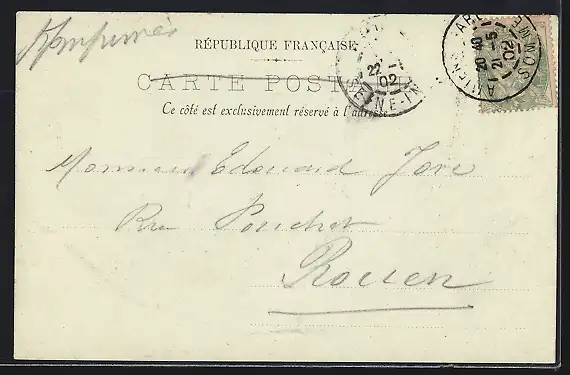 Imprimés
RÉPUBLIQUE FRANÇAISE
CARTE POSTALE
Ce côté est exclusivement réservé à l'adresse
Monsieur Edouard Jore
Rue Pouchet
Rouen
22 -
02
SEINE-IN
AMIENS-GARE
20 40
21 -5
02
SOMME